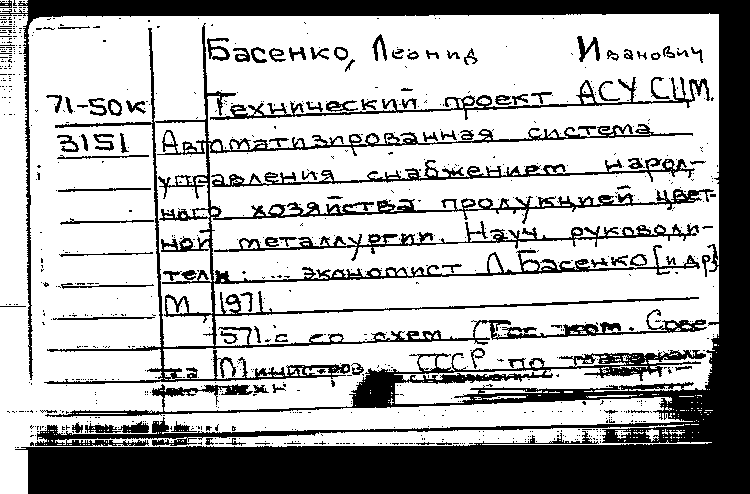 Басенко, Леонид Иванович
71-50к Технический проект АСУ СЦМ.
3151 Автоматизированная система
управления снабжением народ-
ного хозяйства продукцией цвет-
ной металлургии. Науч. руководи-
тели: ... экономист Л. Басенко [и др]
М, 1971.
571 с со схем. (Гос. ком. Сове-
та Министров СССР по